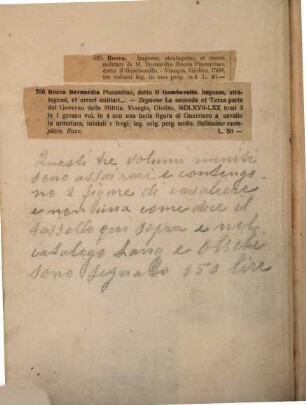 525. Rocca. - Imprese, stratagemi, et errori
militari di M. Bernardin Rocca Piacentino,
detto il Gamberello. - Vinegia, Giolito, 1566,
tre volumi leg. in una perg. in-4 L. 45—
706 Rocca Bernardin Piacentino, detto il Gamberello. Imprese, stra-
tagemi, et errori militari... — Seguono La seconda et Terza parte
del Governo della Militia. Vinegia, Giolito, MDLXVII-LXX tomi 3
in 1 grosso vol. in 4 con una bella figura di Guerriero a cavallo
in armatura, iniziali e fregi, leg. orig. perg. molle. Bellissimo esem-
plare. Raro. L. 50 —
Questi tre volumi riuniti
sono assai rari e contengo-
no 2 figure di cavaliere
e non una come dice il
tassello qui sopra e nel
catalogo e Olschki
sono segnato 150 lire